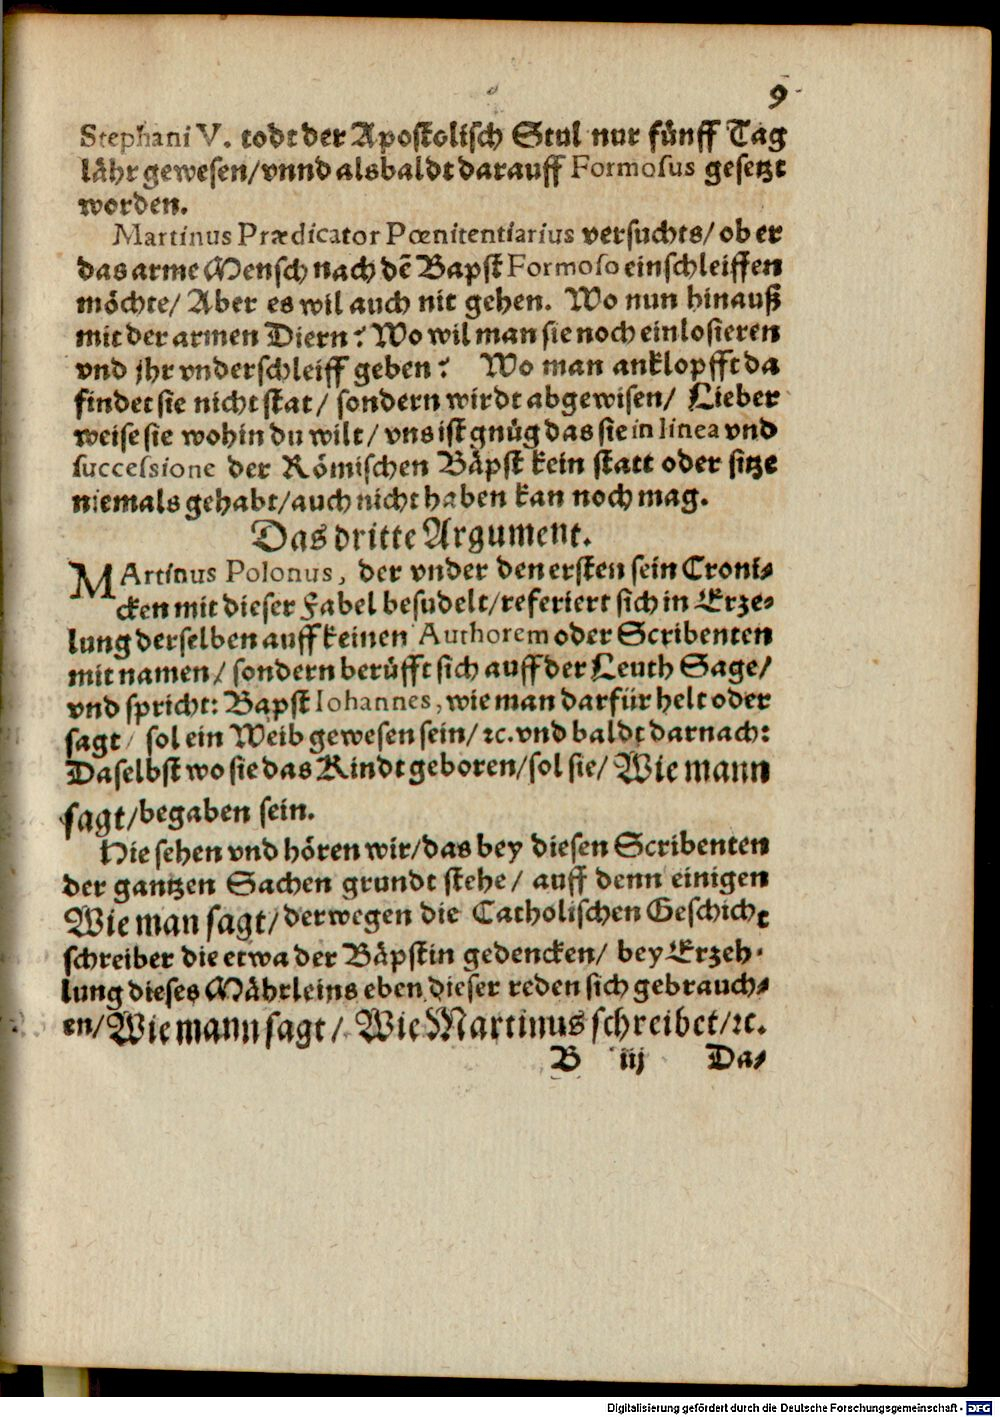 9
Stephani V. todt der Apostolisch Stul nur fünff Tag
lähr gewesen/vnnd alsbaldt darauff Formosus gesetzt
worden.
Martinus Prædicator Pœnitentiarius versuchts/ ob er
das arme Mensch nach dẽ Bapst Formoso einschleiffen
möchte/ Aber es wil auch nit gehen. Wo nun hinauß
mit der armen Diern? Wo wil man sie noch einlosieren
vnd jhr vnderschleiff geben? Wo man anklopfft da
findet sie nicht stat/ sondern wirdt abgewisen/ Lieber
weise sie wohin du wilt/ vns ist gnüg das sie in linea vnd
successione der Römischen Bäpst kein statt oder sitze
niemals gehabt/auch nicht haben kan noch mag.
Das dritte Argument.
MArtinus Polonus, der vnder den ersten sein Croni-
cken mit dieser Fabel besudelt/referiert sich in Erze-
lung derselben auff keinen Authorem oder Scribenten
mit namen/ sondern berüfft sich auff der Leuth Sage/
vnd spricht: Bapst Iohannes, wie man darfür helt oder
sagt/ sol ein Weib gewesen sein/ ꝛc. vnd baldt darnach:
Daselbst wo sie das Kindt geboren/sol sie/ Wie mann
sagt/begaben sein.
Hie sehen vnd hören wir/das bey diesen Scribenten
der gantzen Sachen grundt stehe/ auff denn einigen
Wie man sagt/derwegen die Catholischen Geschicht
schreiber die etwa der Bäpstin gedencken/ bey Erzeh-
lung dieses Mährleins eben dieser reden sich gebrauch-
en/Wie mann sagt/ Wie Martinus schreibet/ꝛc.
B iij Da-
Digitalisierung gefördert durch die Deutsche Forschungsgemeinschaft - DFG